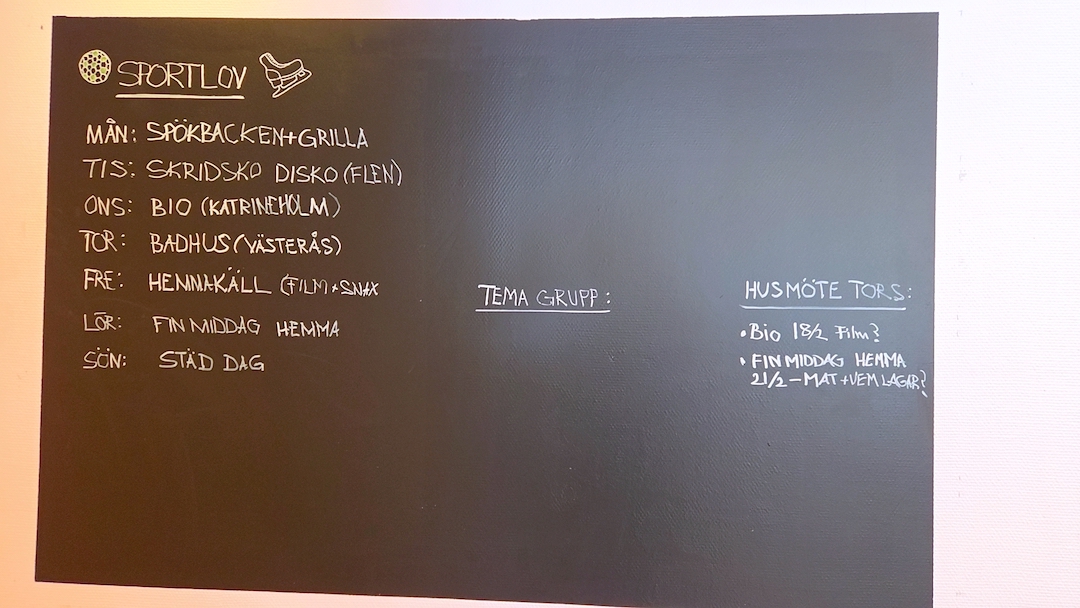 SPORTLOV
MÅN: SPÖKBACKEN+GRILLA
TIS: SKRIDSKO DISKO (FLEN)
ONS: BIO (KATRINEHOLM)
TOR: BADHUS (VÄSTERÅS)
FRE: HEMMAKÄLL (FILM+SNAX
LÖR: FINMIDDAG HEMMA
SÖN: STÄD DAG
TEMA GRUPP:
HUSMÖTE TORS:
• Bio 18/2 Film?
• FINMIDDAG HEMMA
21/2 - MAT + VEM LAGAR?